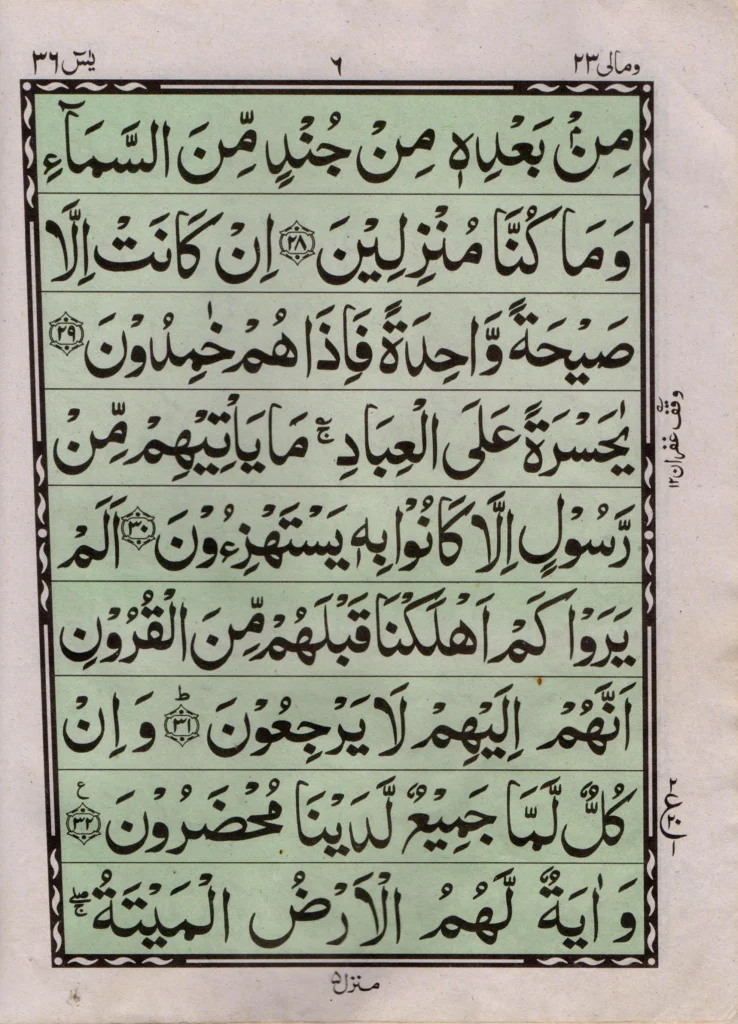 یٰسٓ ۳۶ ۶ ومالی ۲۳
مِنْۢ بَعْدِهٖ مِنْ جُنْدٍ مِّنَ السَّمَآءِ
وَمَا كُنَّا مُنْزِلِيْنَ ۲۸ اِنْ كَانَتْ اِلَّا
صَيْحَةً وَّاحِدَةً فَاِذَا هُمْ خٰمِدُوْنَ ۲۹
يٰحَسْرَةً عَلَى الْعِبَادِ ۚ مَا يَاْتِيْهِمْ مِّنْ
رَّسُوْلٍ اِلَّا كَانُوْا بِهٖ يَسْتَهْزِءُوْنَ ۳۰ اَلَمْ
يَرَوْا كَمْ اَهْلَكْنَا قَبْلَهُمْ مِّنَ الْقُرُوْنِ
اَنَّهُمْ اِلَيْهِمْ لَا يَرْجِعُوْنَ ؕ ۳۱ وَاِنْ
كُلٌّ لَّمَّا جَمِيْعٌ لَّدَيْنَا مُحْضَرُوْنَ ۳۲ ع
وَاٰيَةٌ لَّهُمُ الْاَرْضُ الْمَيْتَةُ ۖۚ
وقف غفران ۱۲
منزل ۵